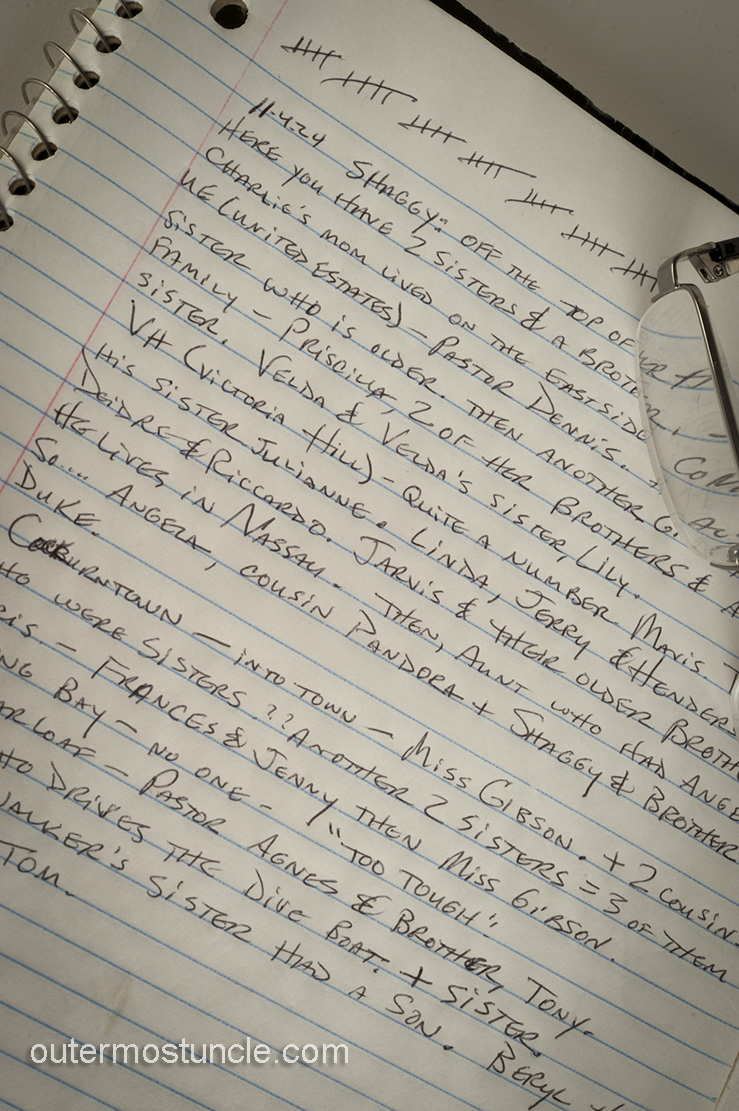 11-4-24 SHAGGY: OFF THE TOP OF
HERE YOU HAVE 2 SISTERS & A BROTHER. –
CHARLIE'S MOM LIVED ON THE EASTSIDE
UE (UNITED ESTATES) – PASTOR DENNIS.
SISTER WHO IS OLDER. THEN ANOTHER G.
FAMILY – PRISCILLA, 2 OF HER BROTHERS & A
SISTER. VELDA & VELDA'S SISTER, LILY.
VH (VICTORIA HILL) – QUITE A NUMBER. MAVIS. T
(HIS SISTER JULIANNE. LINDA, JERRY & HENDER
DEIDRE & RICCARDO. JARVIS & THEIR OLDER BROTH
HE LIVES IN NASSAU. THEN, AUNT WHO HAD ANGE
SO.... ANGELA, COUSIN PANDORA + SHAGGY & BROTHER
DUKE.
COCKBURNTOWN – INTO TOWN – MISS GIBSON. + 2 COUSIN-
HO WERE SISTERS ?? ANOTHER 2 SISTERS = 3 OF THEM
CIS – FRANCES & JENNY THEN MISS GIBSON.
NG BAY – NO ONE – "TOO TOUGH".
ARLOAF – PASTOR AGNES & BROTHER, TONY.
HO DRIVES THE DIVE BOAT. + SISTER.
WALKER'S SISTER HAD A SON. BERYL +
TOM.
outermostuncle.com